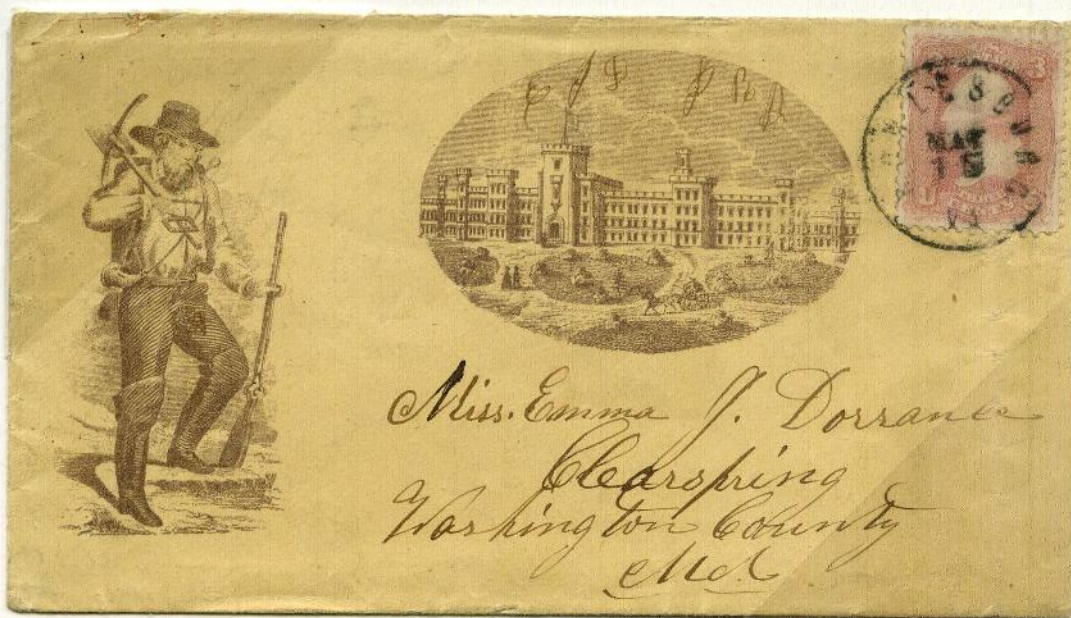 VA
Miss. Emma J. Dorrance
Clearspring
Washington County
Md